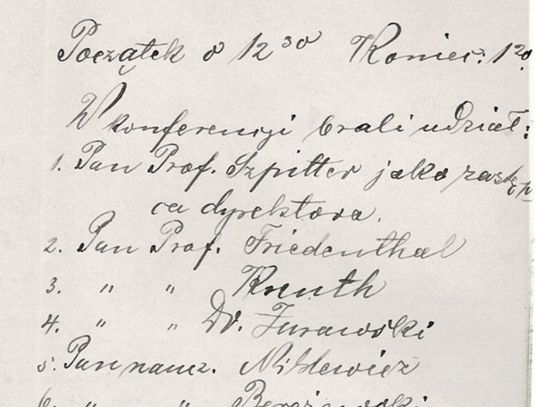 Początek o 12³⁰ Koniec: 1²⁰.
W konferencyi brali udział:
1. Pan Prof. Szpitter jako zastęp
ca dyrektora.
2. Pan Prof. Friedenthal
3. " " Kreuth
4. " " Dr. Żurawski
5. Pan naucz. Niklewicz
6. " "